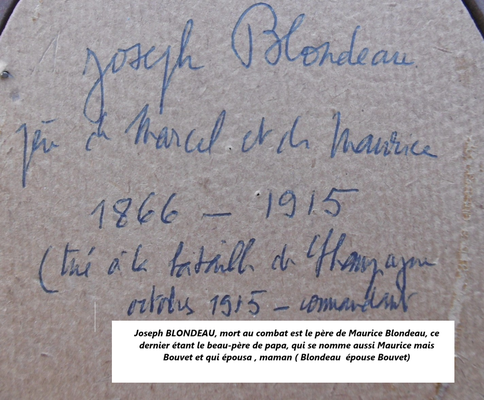 Joseph Blondeau
père de Marcel et de Maurice
1866 – 1915
(tué à la bataille de Champagne
octobre 1915 – commandant
Joseph BLONDEAU, mort au combat est le père de Maurice Blondeau, ce
dernier étant le beau-père de papa, qui se nomme aussi Maurice mais
Bouvet et qui épousa , maman ( Blondeau épouse Bouvet)